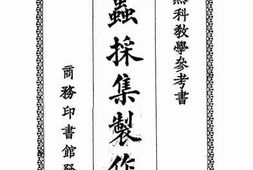 然科教學參考書
蟲採集製作
商務印書館發